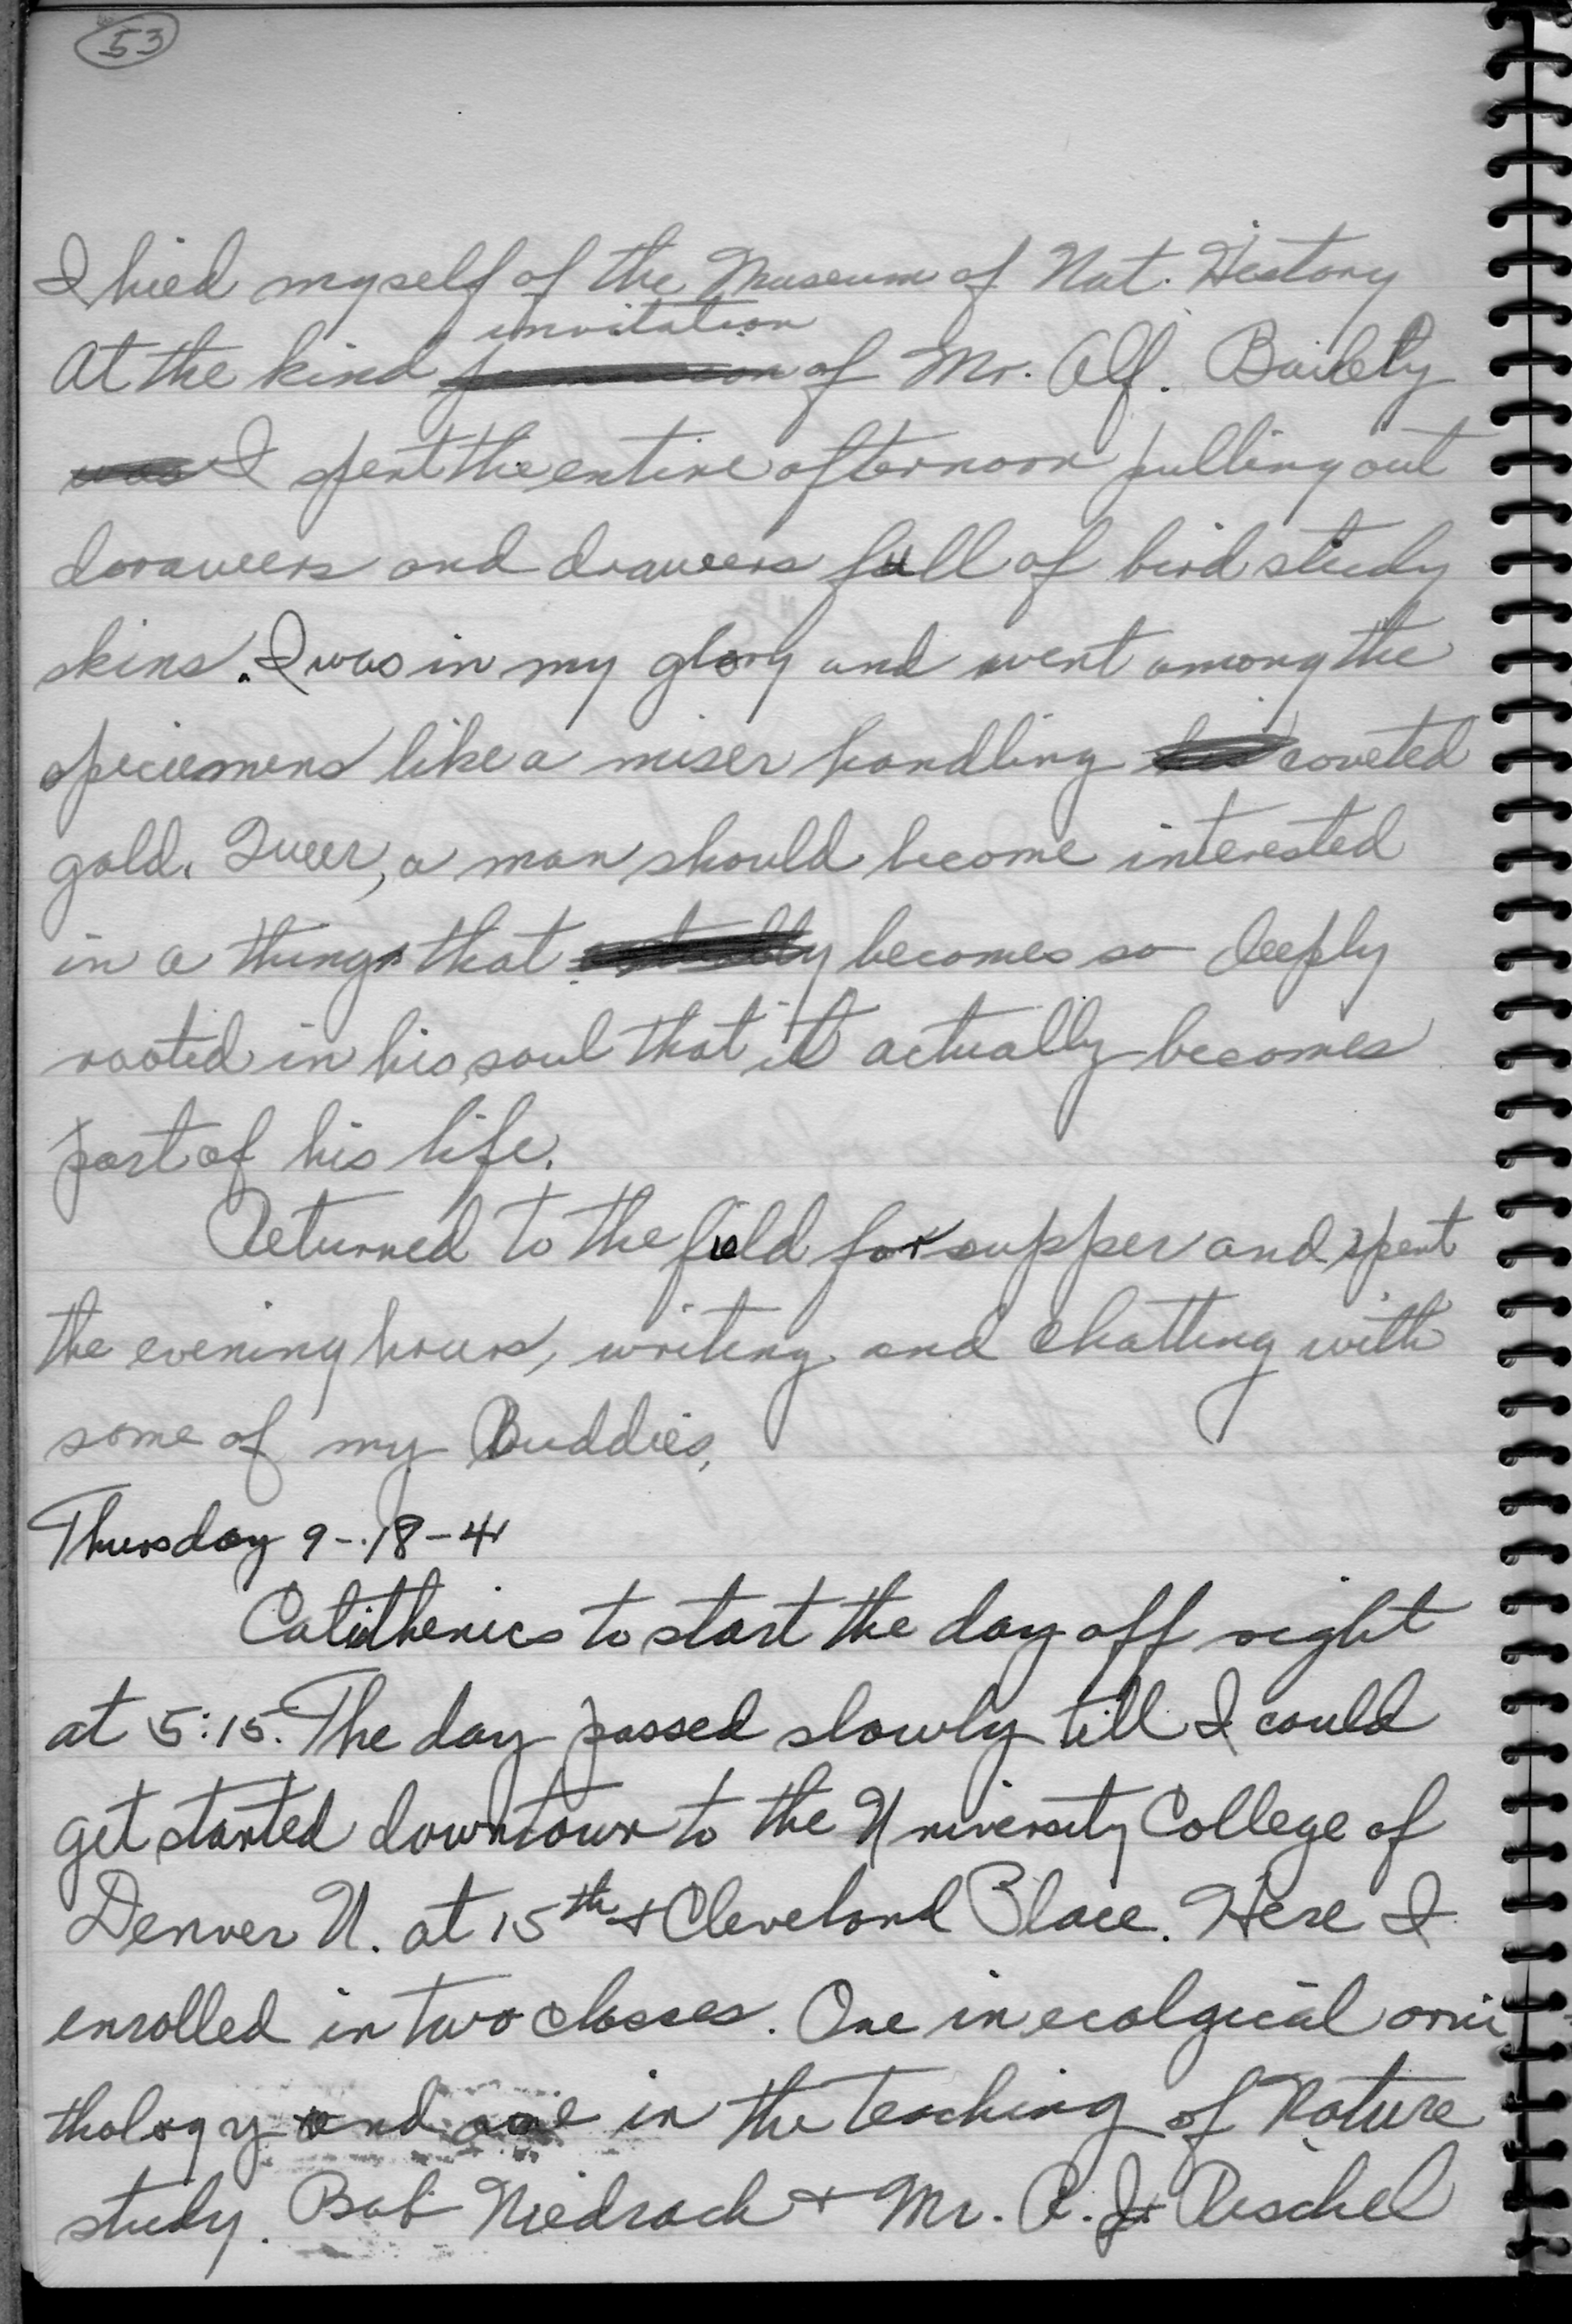 53
I hied myself of the Museum of Nat. History
invitation
At the kind of Mr. Alf. Bailety
I spent the entire afternoon pulling out
doraweers and drawers full of bird study
skins. I was in my glory and went among the
speciemens like a miser handling coveted
gold. Queer, a man should become interested
in a things that becomes so deeply
rooted in his soul that it actually becomes
part of his life.
Returned to the field for supper and spent
the evening hours, writing and chatting with
some of my Buddies,
Thursday 9-18-41
Calisthenics to start the day off right
at 5:15. The day passed slowly till I could
get started downtown to the University College of
Denver U. at 15th + Cleveland Place. Here I
enrolled in two classes. One in ecolgical orni
thology and one in the teaching of Nature
study. Bob Niedrach + Mr. R. J. Rischel